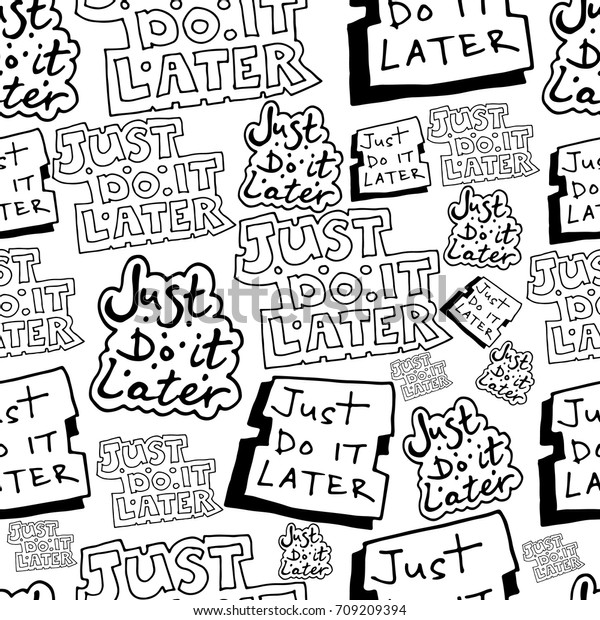 Do it
Later
JUST
DO.IT
LATER
Just
Do it
Later
DO IT
LATER
Just
Do it
Later
JUST
DO IT
LATER
JUST
DO.IT
LATER
Just
Do it
Later
Just
DO IT
LATER
JUST
DO.IT
LATER
Just
Do it
Later
Just
DO IT
LATER
JUST
DO.IT
LATER
Just
Do it
Later
Just
DO IT
LATER
Just
Do it
Later
JUST
DO.IT
LATER
JUST
DO.IT
LATER
Just
DO IT
LATER
Just
Do it
Later
JUST
DO.IT
LATER
JUST
DO.IT
LATER
Just
Do it
Later
Just
DO IT
JUST
DO.IT
LATER
JUST
LATER
shutterstock
www.shutterstock.com · 709209394